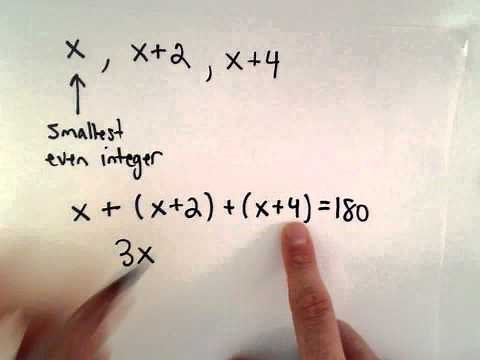 x, x+2, x+4
smallest
even integer
x + (x+2) + (x+4) = 180
3x